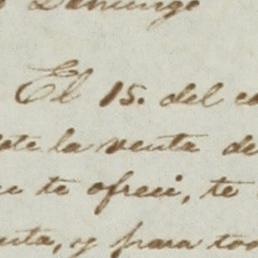 Domingo
El 15. del
la venta de
te ofreci, te
, y para